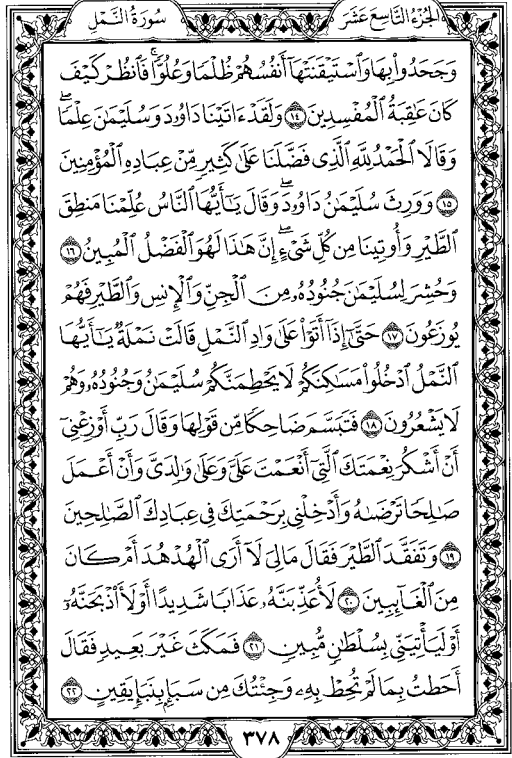 الجزء التاسع عشر
سورة النمل
وَجَحَدُوا۟ بِهَا وَٱسْتَيْقَنَتْهَآ أَنفُسُهُمْ ظُلْمًا وَعُلُوًّا ۚ فَٱنظُرْ كَيْفَ
كَانَ عَـٰقِبَةُ ٱلْمُفْسِدِينَ ١٤ وَلَقَدْ ءَاتَيْنَا دَاوُۥدَ وَسُلَيْمَـٰنَ عِلْمًا ۖ
وَقَالَا ٱلْحَمْدُ لِلَّهِ ٱلَّذِى فَضَّلَنَا عَلَىٰ كَثِيرٍ مِّنْ عِبَادِهِ ٱلْمُؤْمِنِينَ
١٥ وَوَرِثَ سُلَيْمَـٰنُ دَاوُۥدَ ۖ وَقَالَ يَـٰٓأَيُّهَا ٱلنَّاسُ عُلِّمْنَا مَنطِقَ
ٱلطَّيْرِ وَأُوتِينَا مِن كُلِّ شَىْءٍ ۖ إِنَّ هَـٰذَا لَهُوَ ٱلْفَضْلُ ٱلْمُبِينُ ١٦
وَحُشِرَ لِسُلَيْمَـٰنَ جُنُودُهُۥ مِنَ ٱلْجِنِّ وَٱلْإِنسِ وَٱلطَّيْرِ فَهُمْ
يُوزَعُونَ ١٧ حَتَّىٰٓ إِذَآ أَتَوْا۟ عَلَىٰ وَادِ ٱلنَّمْلِ قَالَتْ نَمْلَةٌ يَـٰٓأَيُّهَا
ٱلنَّمْلُ ٱدْخُلُوا۟ مَسَـٰكِنَكُمْ لَا يَحْطِمَنَّكُمْ سُلَيْمَـٰنُ وَجُنُودُهُۥ وَهُمْ
لَا يَشْعُرُونَ ١٨ فَتَبَسَّمَ ضَاحِكًا مِّن قَوْلِهَا وَقَالَ رَبِّ أَوْزِعْنِىٓ
أَنْ أَشْكُرَ نِعْمَتَكَ ٱلَّتِىٓ أَنْعَمْتَ عَلَىَّ وَعَلَىٰ وَٰلِدَىَّ وَأَنْ أَعْمَلَ
صَـٰلِحًا تَرْضَىٰهُ وَأَدْخِلْنِى بِرَحْمَتِكَ فِى عِبَادِكَ ٱلصَّـٰلِحِينَ
١٩ وَتَفَقَّدَ ٱلطَّيْرَ فَقَالَ مَا لِىَ لَآ أَرَى ٱلْهُدْهُدَ أَمْ كَانَ
مِنَ ٱلْغَآئِبِينَ ٢٠ لَأُعَذِّبَنَّهُۥ عَذَابًا شَدِيدًا أَوْ لَأَا۟ذْبَحَنَّهُۥٓ
أَوْ لَيَأْتِيَنِّى بِسُلْطَـٰنٍ مُّبِينٍ ٢١ فَمَكَثَ غَيْرَ بَعِيدٍ فَقَالَ
أَحَطتُ بِمَا لَمْ تُحِطْ بِهِۦ وَجِئْتُكَ مِن سَبَإٍۭ بِنَبَإٍ يَقِينٍ ٢٢
٣٧٨